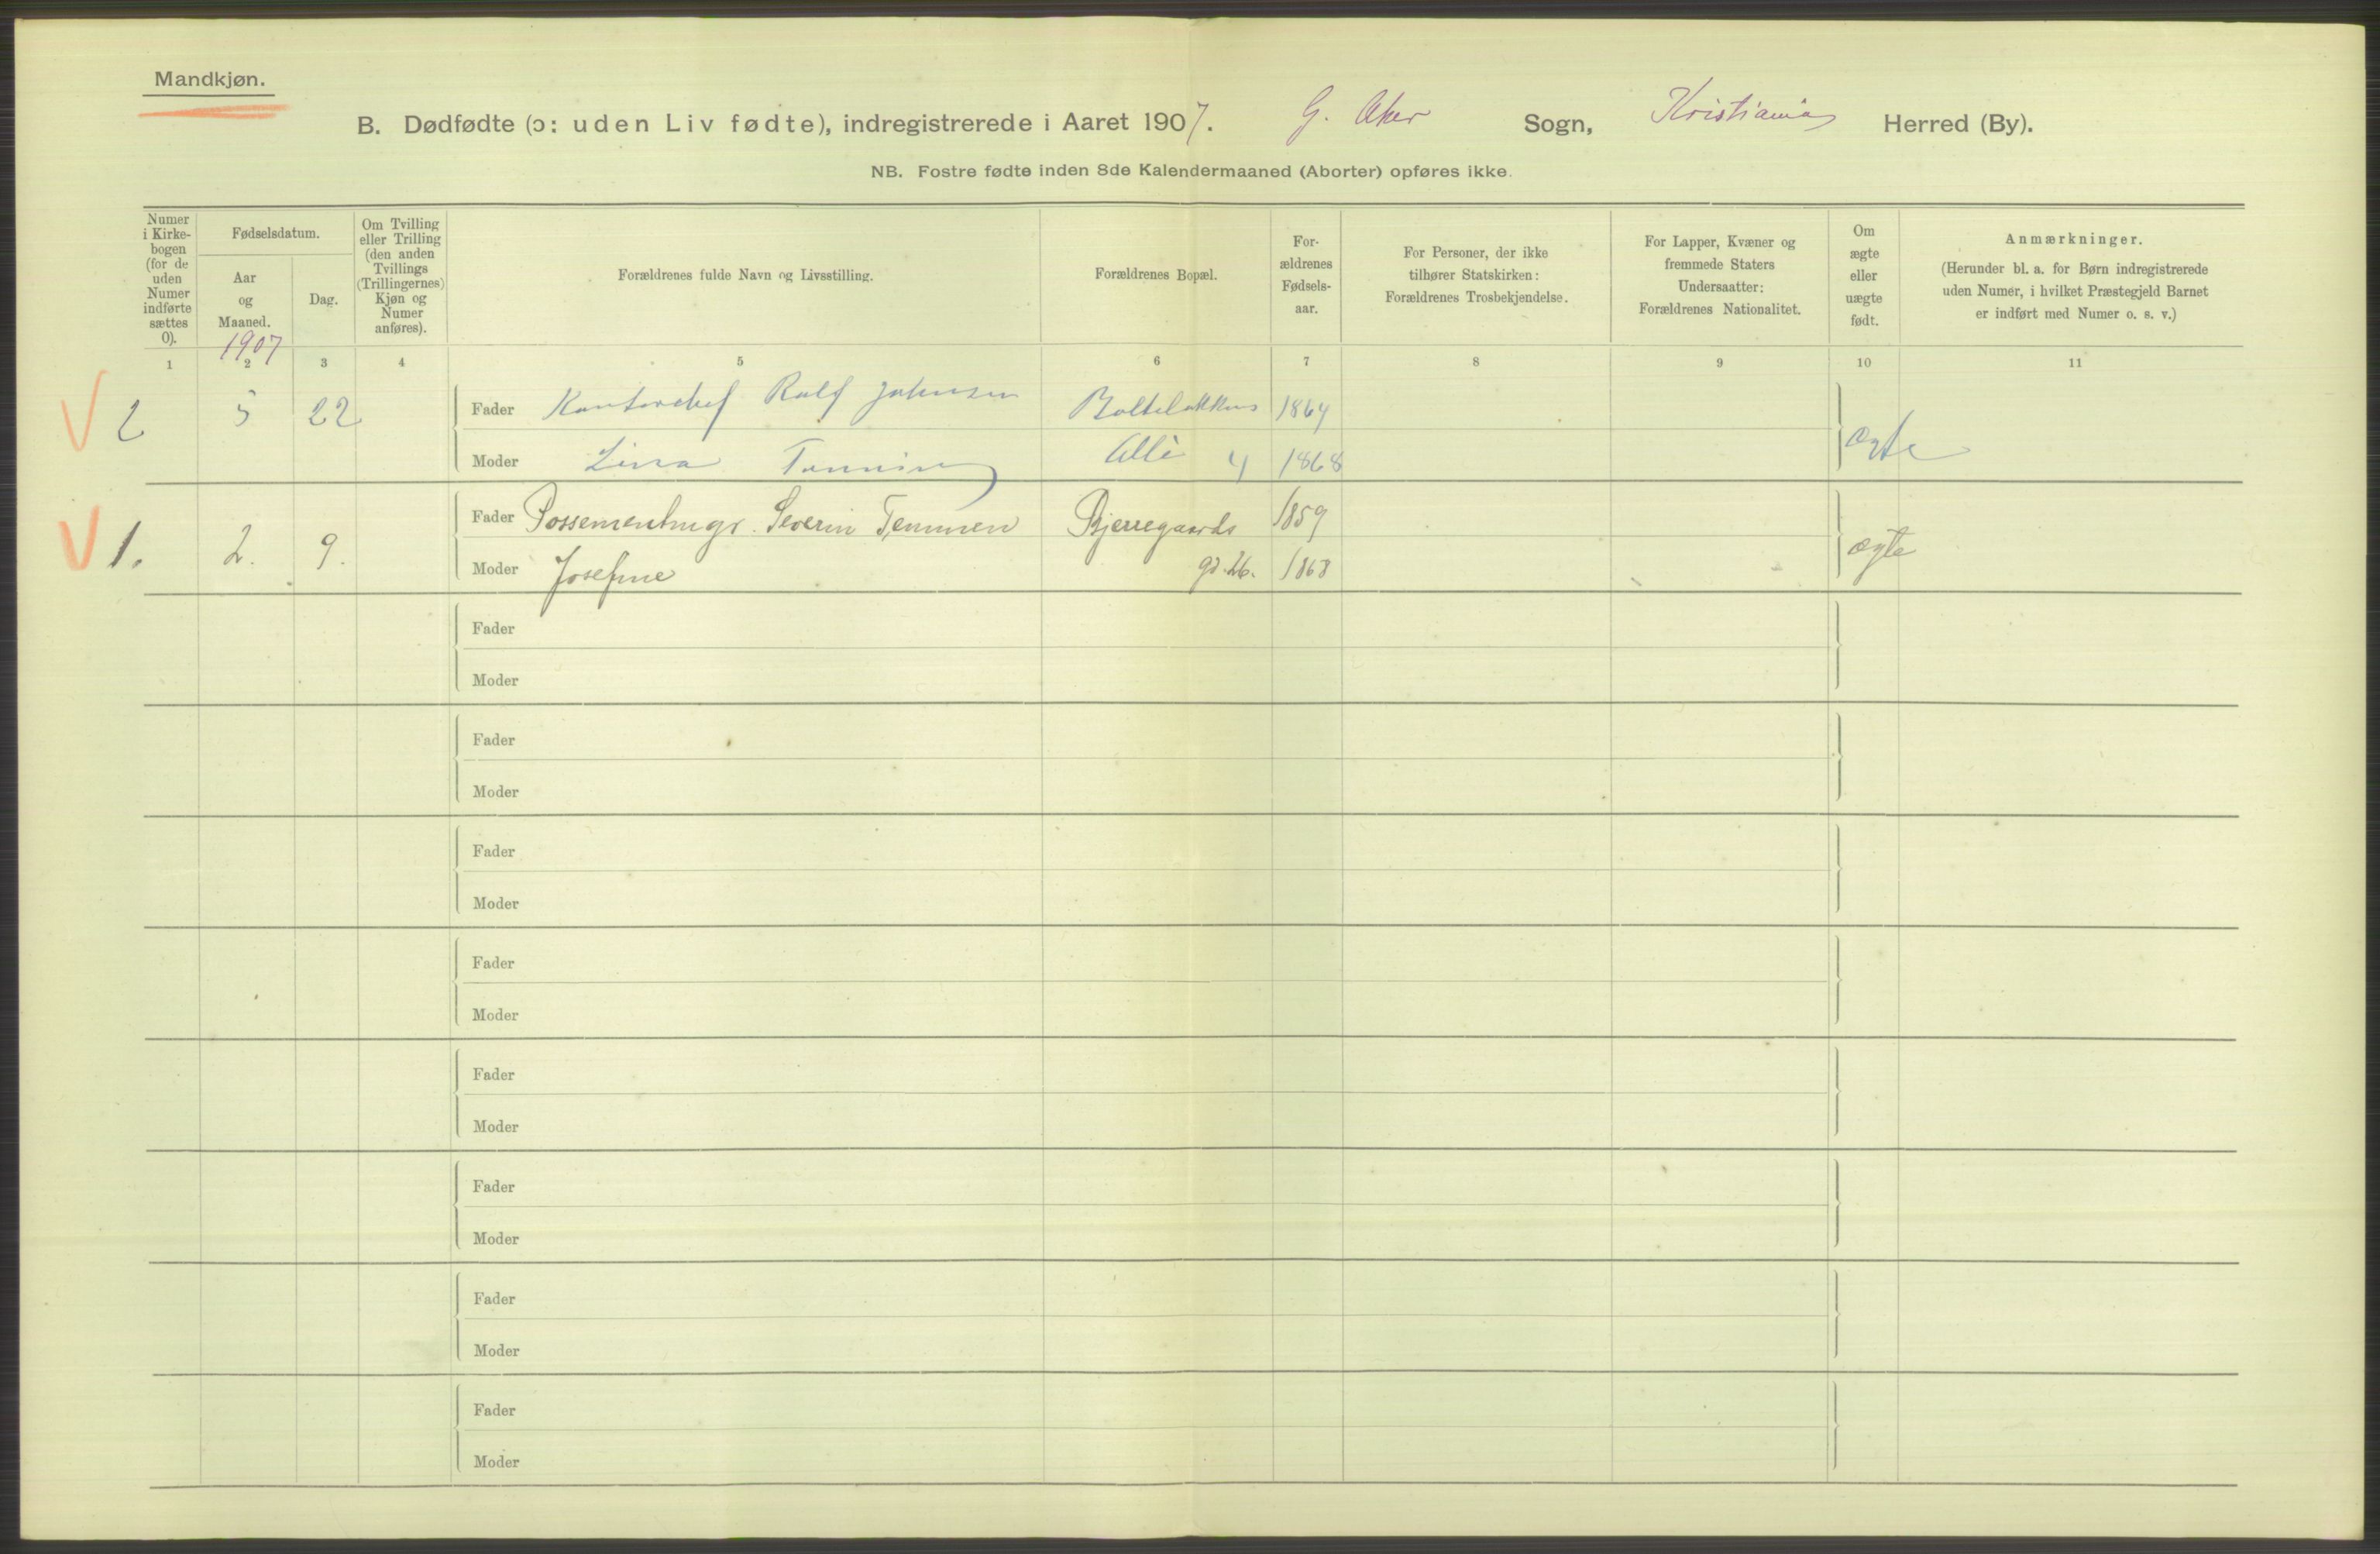 Mandkjøn.
B. Dødfødte (ɔ: uden Liv fødte), indregistrerede i Aaret 1907. G. Aker Sogn, Kristiania Herred (By).
NB. Fostre fødte inden 8de Kalendermaaned (Aborter) opføres ikke.
Numer i Kirke-bogen (for de uden Numer indførte sættes 0).
Fødselsdatum.
Aar og Maaned.
Dag.
Om Tvilling eller Trilling (den anden Tvillings (Trillingernes) Kjøn og Numer anføres).
Forældrenes fulde Navn og Livsstilling.
Forældrenes Bopæl.
For-ældrenes Fødsels-aar.
For Personer, der ikke tilhører Statskirken: Forældrenes Trosbekjendelse.
For Lapper, Kvæner og fremmede Staters Undersaatter: Forældrenes Nationalitet.
Om ægte eller uægte født.
Anmærkninger.
(Herunder bl. a. for Børn indregistrerede uden Numer, i hvilket Præstegjeld Barnet er indført med Numer o. s. v.)
1907
1 2 3 4 5 6 7 8 9 10 11
V 2 5 22 Fader Kontorchef Rolf Johnsen Bolteløkkens 1864
Moder Lina Tønning Allé 4 1868 ægte
V 1. 2. 9. Fader Possementmgr. Severin Temmen Bjerregaards 1859
Moder Josefine gd. 26. 1868 ægte
Fader
Moder
Fader
Moder
Fader
Moder
Fader
Moder
Fader
Moder
Fader
Moder
Fader
Moder
Fader
Moder